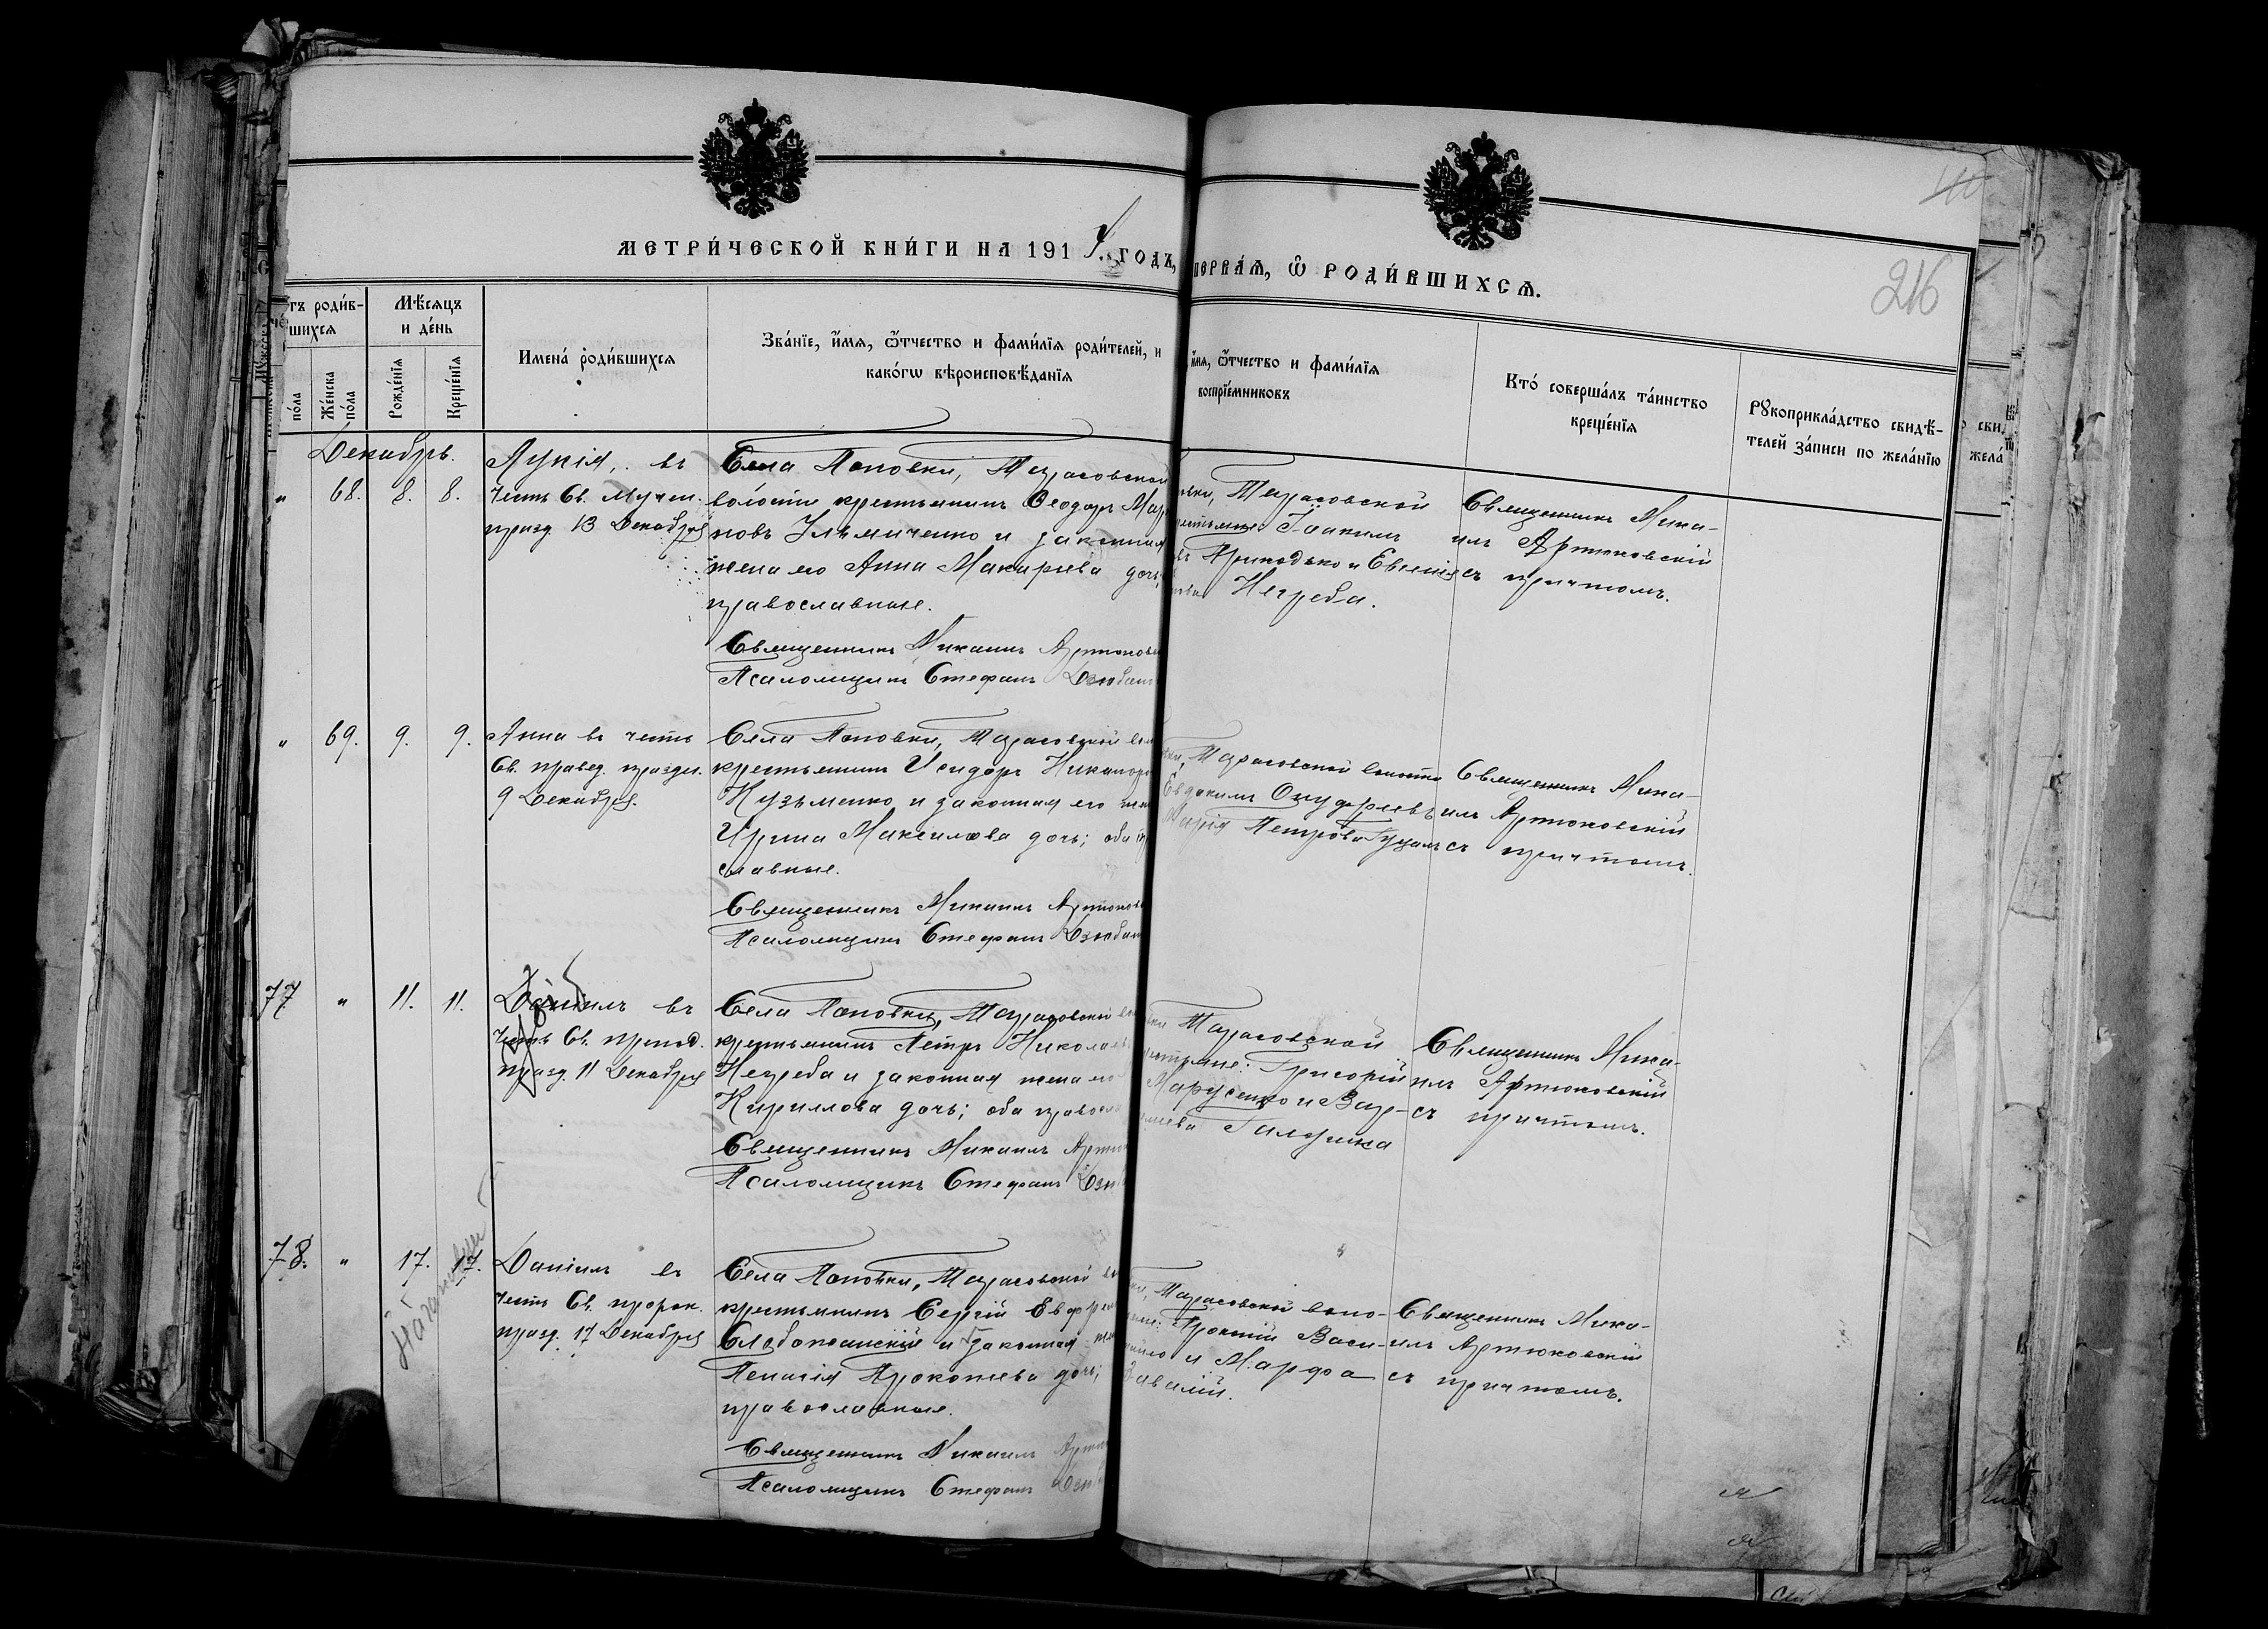 МЕТРИ́ЧЕСКОЙ КНИ́ГИ НА 191 ГОДЪ,
ПЕРВА́Я, Ѡ РОДИ́ВШИХСЯ.
216
тъ роди́в-
шихся
Мѣ́сяцъ
и де́нь
по́ла
Же́нска
по́ла
Рожде́нїя
Креще́нїя
Имена́ роди́вшихся
Зва́нїе, и́мя, ѻ҆́тчество и фами́лїя роди́телей, и
како́гѡ вѣроисповѣ́данїя
и́мя, ѻ҆́тчество и фами́лїя
воспрїе́мниковъ
Кто́ соверша́лъ та́инство
креще́нїя
Рꙋкоприкла́дство свидѣ́-
телей за́писи по жела́нїю
Декабрь.
„ 68. 8. 8.
Лукія, въ
честь Св. мучен.
празд. 13 Декабря
Села Поповки, Тарасовской
волости крестьянинъ Ѳеодоръ Мар
новъ Ильяшенко и законная
жена его Анна Макариева дочь,
православные.
Священникъ Михаилъ Артюковс
Псаломщикъ Стефанъ Дзюбан
вки, Тарасовской
рестьяне Іоакимъ
въ Приходько и Евгенія
Негреба.
Священникъ Миха-
илъ Артюковскій
съ причтомъ.
„ 69. 9. 9.
Анна въ честь
Св. правед. праздн.
9 Декабря.
Села Поповки, Тарасовской вол
крестьянинъ Исидоръ Никаноро
Кузьменко и законная его жен
Ирина Максимова дочь; оба пр
славные.
Священникъ Михаилъ Артюковс
Псаломщикъ Стефанъ Дзюбан
вки, Тарасовской волости
Евдокимъ Онуфріевъ
Марія Петрова
Священникъ Миха-
илъ Артюковскій
съ причтомъ.
77 „ 11. 11.
Даніилъ въ
честь Св. препод.
празд. 11 Декабря
Села Поповки, Тарасовской вол
крестьянинъ Петръ Николаев
Негреба и законная жена его
Кириллова дочь; оба правосла
Священникъ Михаилъ Артюк
Псаломщикъ Стефанъ Дзю
вки Тарасовской
рестьяне: Григорій
Марусенко и Вар-
Галушка
Священникъ Миха-
илъ Артюковскій
съ причтомъ.
78. „ 17. 17.
Даніилъ въ
честь Св. пророк.
празд. 17 Декабря
Села Поповки, Тарасовской во
крестьянинъ Сергій Евфрем
Слабоспицкій и законная жен
Пелагія Прокопіева дочь;
православные.
Священникъ Михаилъ Артю
Псаломщикъ Стефанъ Дзю
ки, Тарасовской воло-
Прокопій Васи-
и Марфа
Завалій.
Священникъ Миха-
илъ Артюковскій
съ причтомъ.